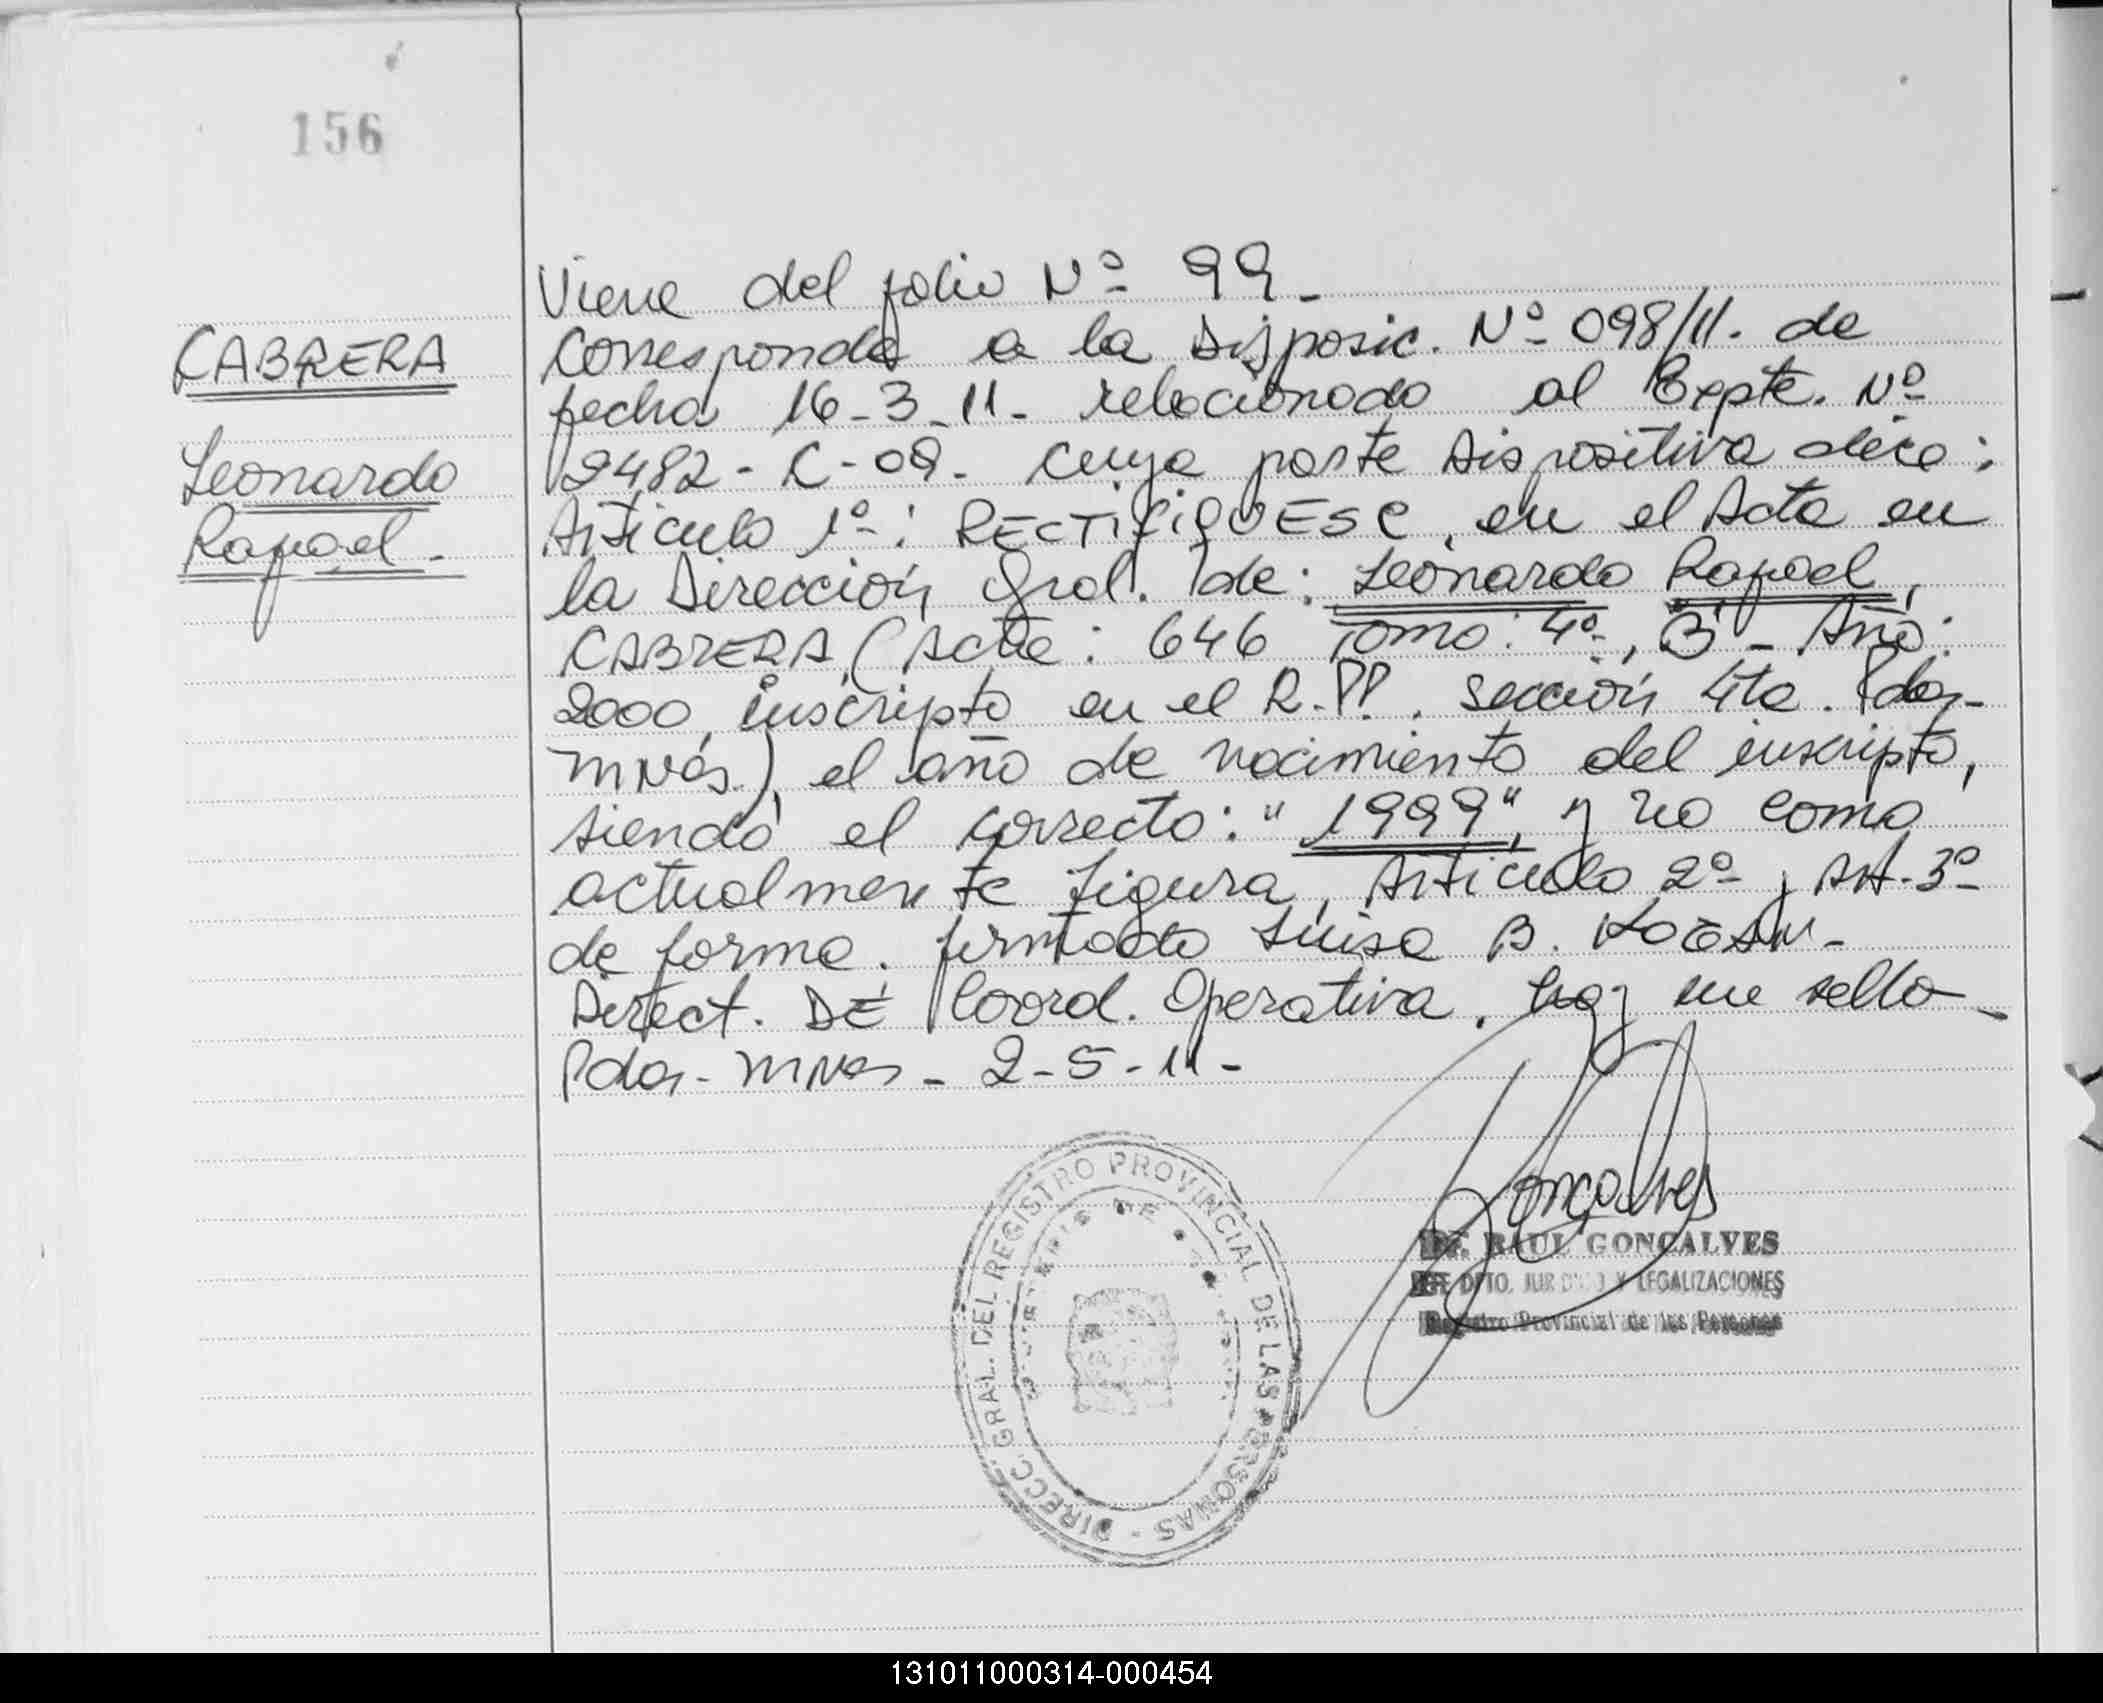 156
CABRERA
Leonardo
Rafael.-
Viene del folio Nº 99.-
Corresponde a la Disposic. Nº 098/11. de
fecha 16-3-11- relacionado al Expte. Nº
9482-C-09- cuya parte dispositiva dice:
Articulo 1º: RECTIFIQUESE, en el Acta en
la Dirección Gral. de: Leonardo Rafael,
CABRERA, (Acta: 646 Tomo: 4º, "B" - Año:
2000, inscripto en el R.P.P. Sección 4ta. Pdas-
mnes.), el año de nacimiento del inscripto,
siendo el correcto: "1999", y no como
actualmente figura, Articulo 2º y Art. 3º
de forma. firmado Luisa B.
Direct. DE Coord. Operativa, hay un sello-
Pdas- mnes- 2-5-11-
Gonçalves
DIRECC. GRAL. DEL REGISTRO PROVINCIAL DE LAS PERSONAS -
RAUL GONCALVES
DPTO. JURIDICO Y LEGALIZACIONES
Registro Provincial de las Personas
131011000314-000454